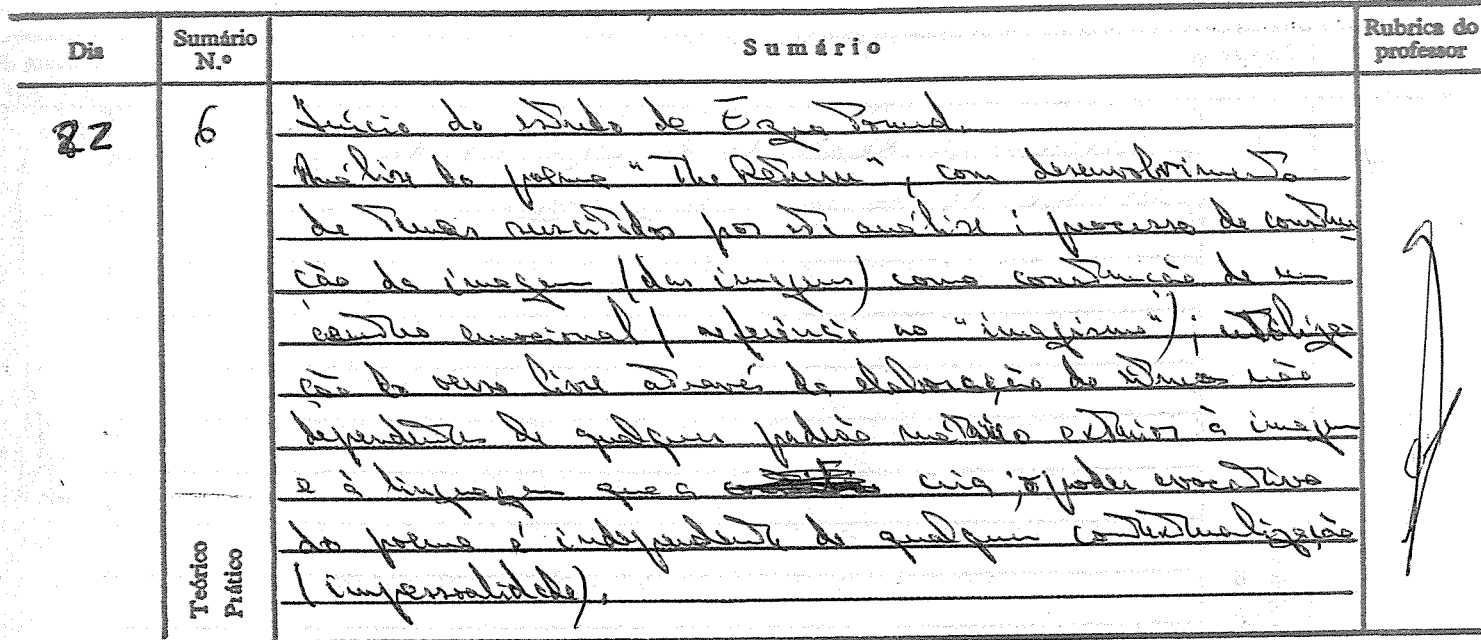 Dia
Sumário N.º
Sumário
Rubrica do professor
22
6
Início do estudo de Ezra Pound.
Análise do poema "The Return", com desenvolvimento
de temas suscitados por esta análise: processo de constru
ção da imagem (das imagens) como construção de um
centro emocional (referência ao "imagismo"); utiliza-
ção do verso livre através da elaboração de ritmos não
dependentes de qualquer padrão métrico exterior à imagem
e à linguagem que a cria; o poder evocativo
do poema é independente de qualquer contextualização
(impessoalidade).
Teórico
Prático